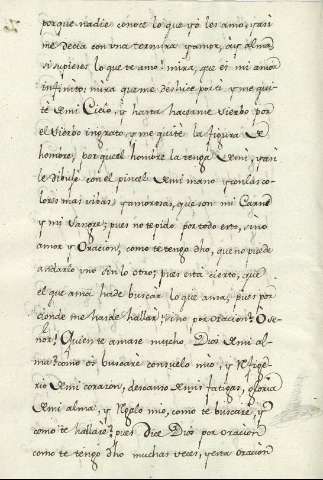 porque nadie conoce lo que yo les amo, y asi
me decia con una ternura y amor, ay alma
si supieses lo que te amo! mira, que es mi amor
infinito; mira que me deshice por ti y me qui-
té de mi Cielo, y hasta hacerme Siervo por
el siervo ingrato, y me quité la figura de
hombre, porque el hombre la tenga de mi, y asi
le dibujé con el pincel de mi mano y con las co-
lores mas vivas, y amorosas, que son mi Carne
y mi Sangre; pues no te pido por todo esto, sino
amor y Oracion, como te tengo dho, que no puede
andar lo uno sin lo otro; pues esta cierto, que
el que ama ha de buscar lo que ama, pues por
donde me has de hallar? sino por oracion? O Se-
ñor! Quien te amase mucho Dios de mi al-
ma! como os buscaré consuelo mio, y Refrige-
rio de mi corazon, descanso de mis fatigas, gloria
de mi alma, y Regalo mio, como te buscaré, y
como te hallaré? pues Dice Dios por oracion
como te tengo dho muchas veces, y esta oracion